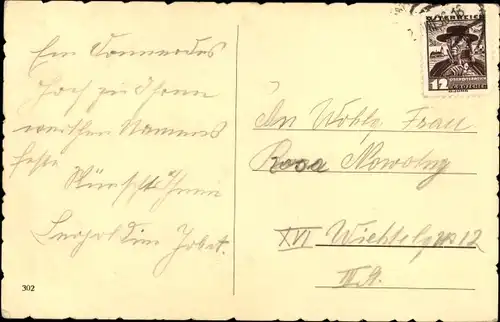 Ein Donnerdes
Hoch zu Ihrem
werthen Namens
feste
Wünscht Ihnen
Leopoldine
302
ÖSTERREICH
12
GROSCHEN
An Wohlg. Frau
Rosa Nowotny
XVI Wichtelg 12